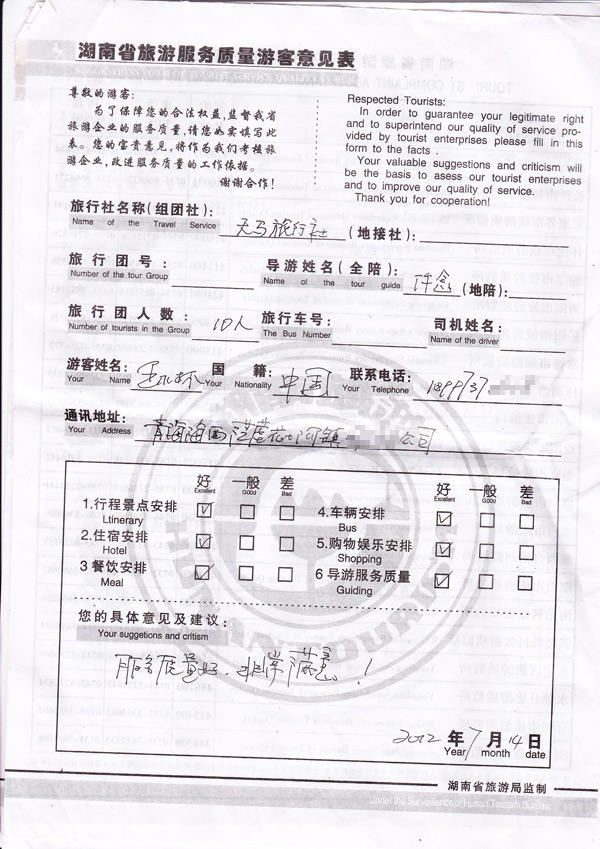 湖南省旅游服务质量游客意见表
SUGGESTIONS FORM OF TOURIST SERVICE QUALITY IN HUNAN
尊敬的游客:
为了保障您的合法权益,监督我省
旅游企业的服务质量,请您如实填写此
表。您的宝贵意见,将作为我们考核旅
游企业,改进服务质量的工作依据。
谢谢合作!
Respected Tourists:
In order to guarantee your legitimate right
and to superintend our quality of service pro-
vided by tourist enterprises please fill in this
form to the facts .
Your valuable suggestions and criticism will
be the basis to asess our tourist enterprises
and to improve our quality of service.
Thank you for cooperation!
旅行社名称(组团社): 天马旅行社 (地接社):
Name of the Travel Service
旅行团号: 导游姓名(全陪): (地陪):
Number of the tour Group Name of the tour guide
旅行团人数: 10人 旅行车号: 司机姓名:
Number of tourists in the Group The Bus Number Name of the driver
游客姓名: 国籍: 中国 联系电话: 1899737
Your Name Your Nationality Your Telephone
通讯地址: 青海海西茫崖花土沟镇 公司
Your Address
好 一般 差 好 一般 差
Excellent Good Bad Excellent Good Bad
1.行程景点安排 ☑ □ □ 4.车辆安排 ☑ □ □
Ltinerary Bus
2.住宿安排 ☑ □ □ 5.购物娱乐安排 ☑ □ □
Hotel Shopping
3 餐饮安排 ☑ □ □ 6 导游服务质量 ☑ □ □
Meal Guiding
您的具体意见及建议:
Your suggetions and critism
服务质量好,非常满意!
2012 年 7 月 14 日
Year month date
湖南省旅游局监制
Under the Surveillance of Hunan Tourism Bureau